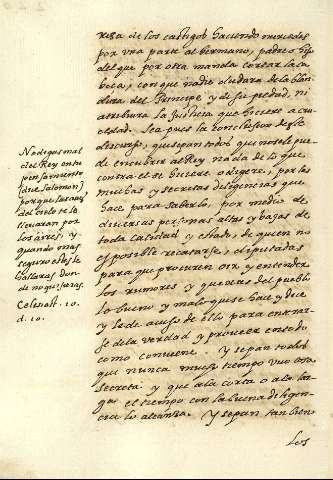 reza de los castigos haciendo mercedes
por una parte al hermano, padre o hijo
del que por otra manda cortar la ca
beza, con que nadie dudara de la blan
dura del Principe y de su piedad, ni
atribuira la Justicia que hiciere a cru
eldad. Sea pues la conclusion deste
discurso, que sepan todos que no se le pue
de encubrir al Rey nada de lo que
contra el se hiciere o digere, por las
muchas y secretas diligencias que
hace para saberlo, por medio de
diversas personas altas y bajas de
toda calidad y estado, de quien no
es posible recatarse, diputadas
para que procuren oir y entender
los rumores y quexas del pueblo
lo bueno y malo que se hace y dice
y le de aviso de ello para enterar
se de la verdad y proveer en todo
como conviene. Y sepan todos
que nunca mucho tiempo vuo cosa
secreta. y que a la corta o a la lar
ga el tiempo con la buena diligen
cia lo alcanza. Y sepan tambien
los
No digas mal
del Rey en tu
pensamiento
(dice Salomon)
porque las aues
del cielo te le
lleuaran por
los aires, y
quando mas
seguro estes te
hallaras don
de no quisieras.
10.